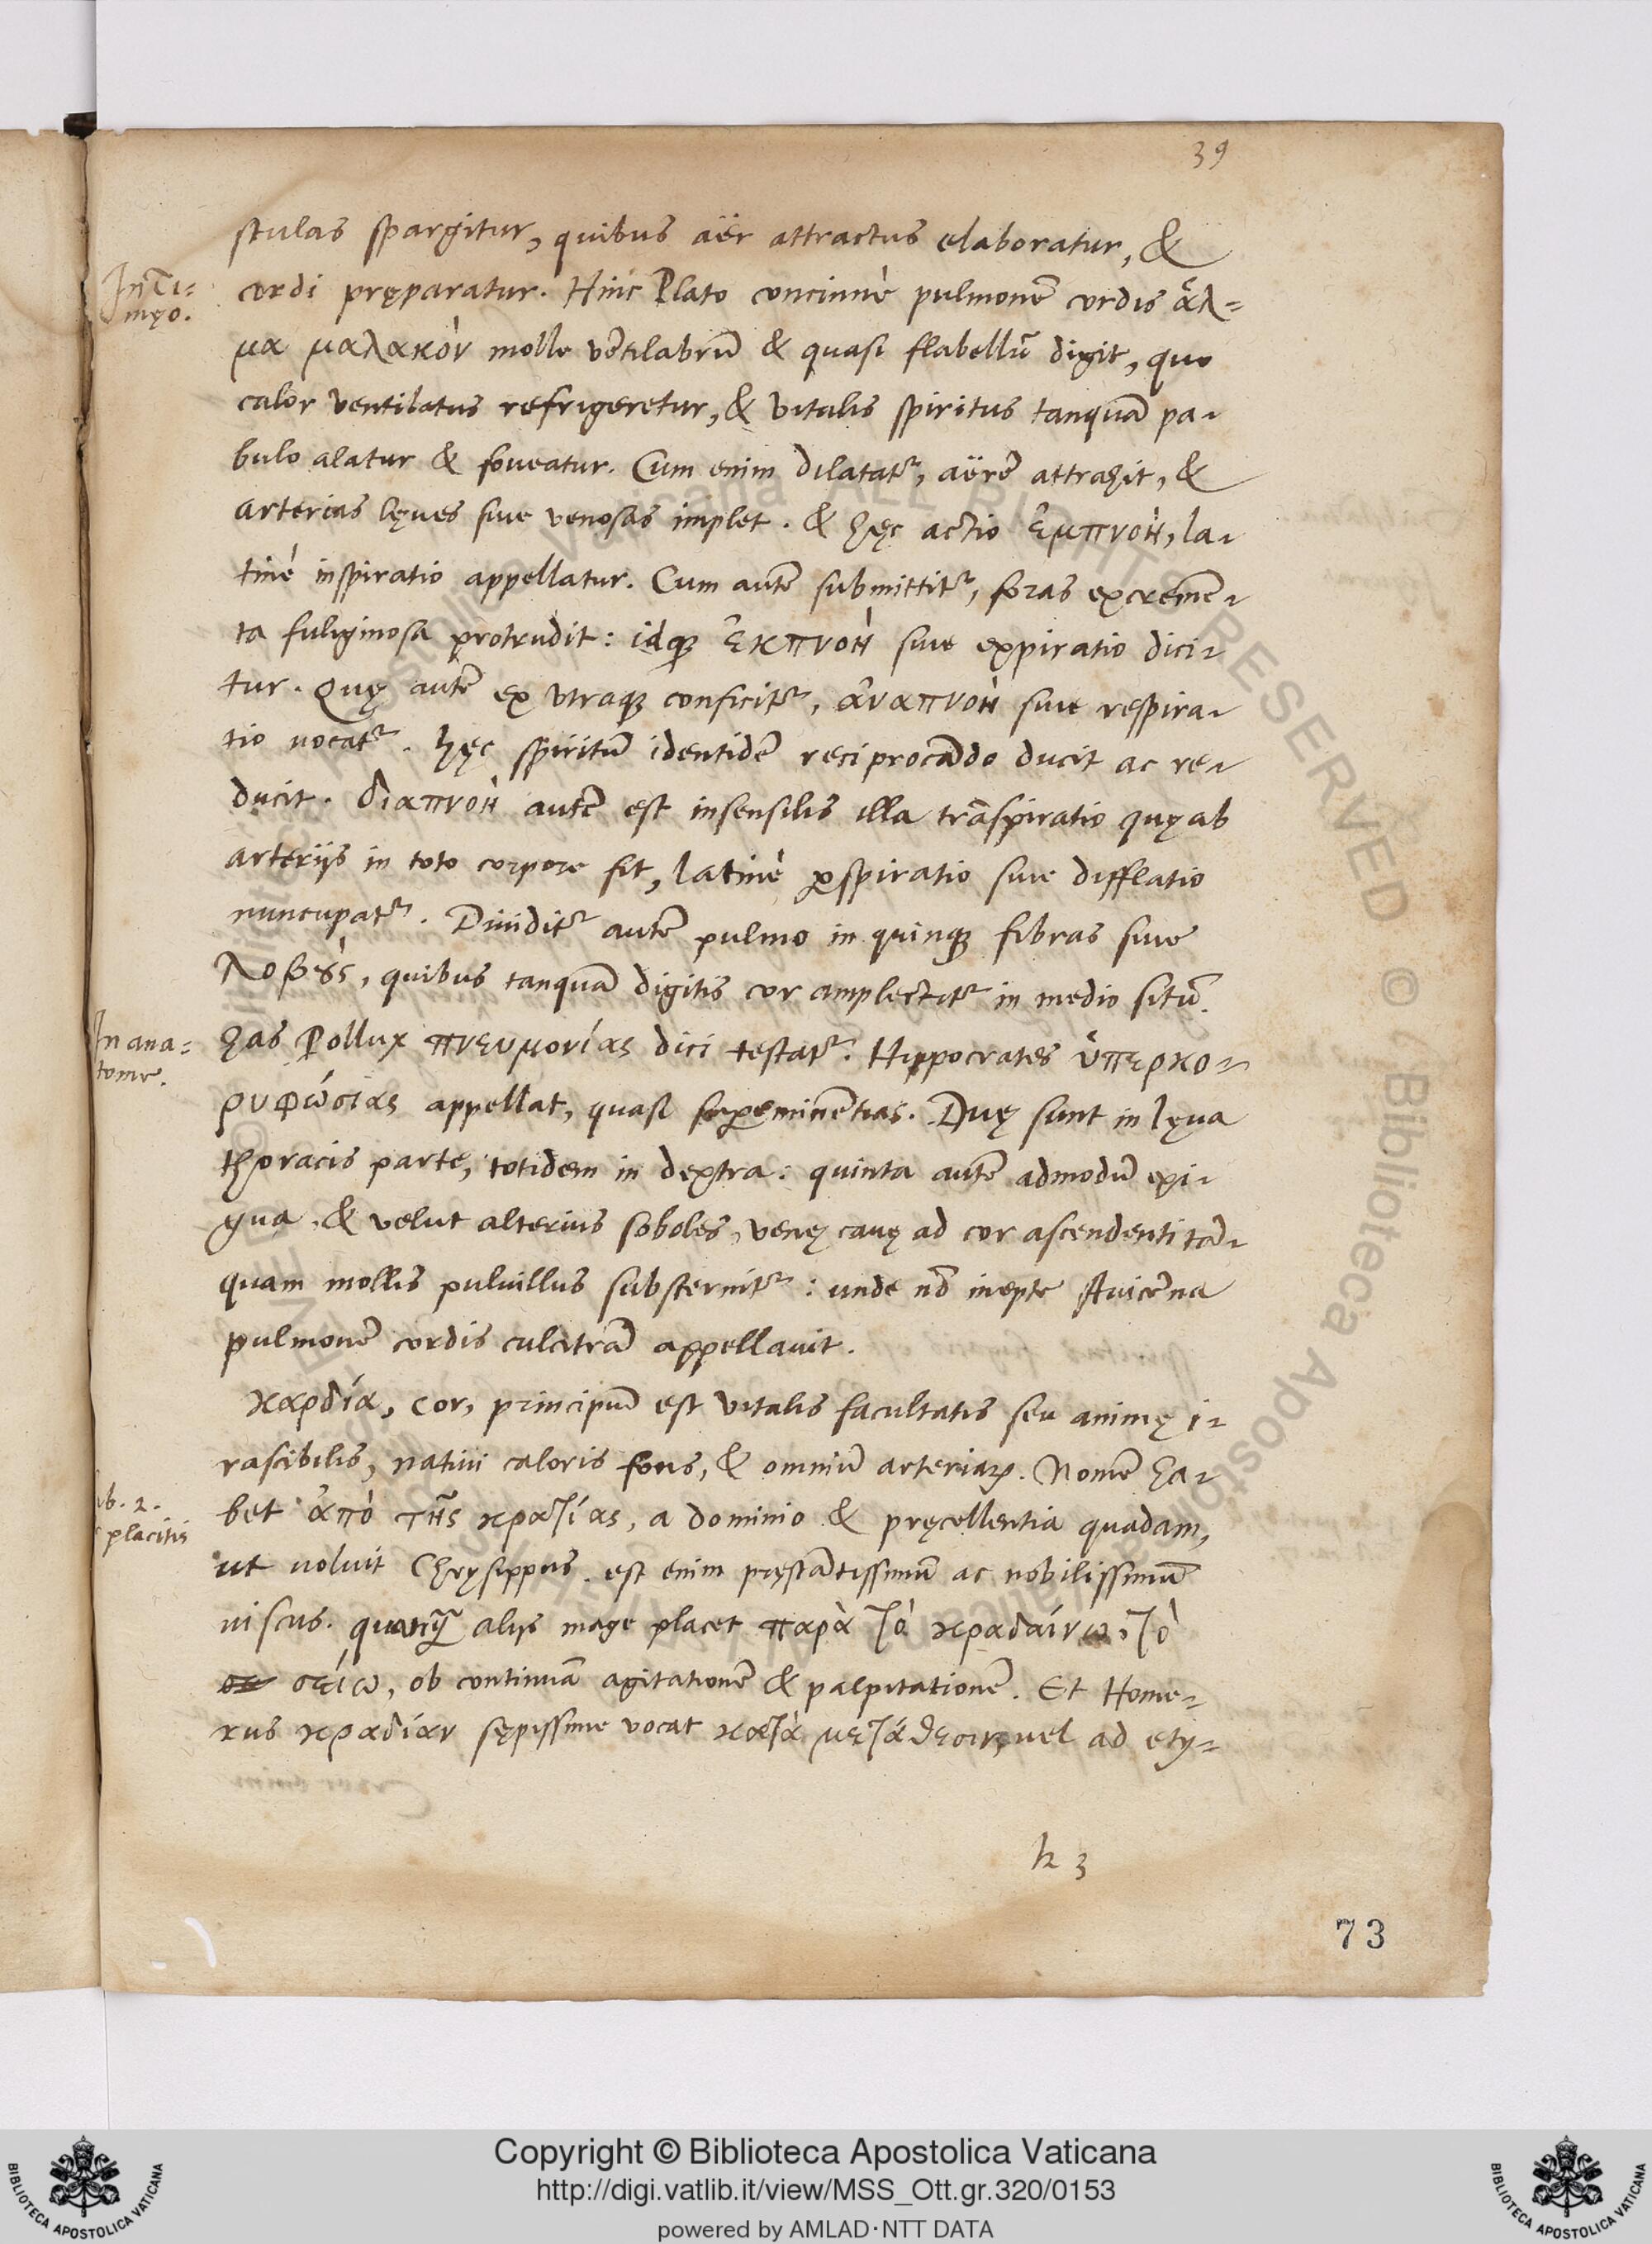 39
stulas spargitur, quibus aër attractus elaboratur, &
In Ti=
męo.
cordi pręparatur. Hinc Plato concinnè pulmonē cordis ἅλ=
μα μαλακὸν molle vētilabrū & quasi flabellū dixit, quo
calor ventilatus refrigeretur, & vitalis spiritus tanquā pa-
bulo alatur & foueatur. Cum enim dilatatʳ, aërē attrahit, &
arterias lęues siue venosas implet. & hęc actio ἐμπνοὴ, la-
tinè inspiratio appellatur. Cum autē submittitʳ, foras excremē-
ta fuliginosa protrudit: idq; ἐκπνοὴ siue expiratio dici-
tur. Quę autē ex vtraq; conficitʳ, ἀναπνοὴ siue respira-
tio uocatʳ. hęc spiritū identidē reciprocādo ducit ac re-
ducit. διαπνοὴ autē est insensilis illa trāspiratio quę ab
arterijs in toto corpore fit, latinè ꝑspiratio siue difflatio
nuncupatʳ. Diuiditʳ autē pulmo in quinq; fibras siue
λοβȣ̀ς, quibus tanquā digitis cor amplectitʳ in medio sitū.
In ana=
tome.
has Pollux πνευμονίας dici testatʳ. Hippocrates ὑπερκο-
ρυφώσιας appellat, quasi suꝑeminētias. Duę sunt in lęua
thoracis parte, totidem in dextra: quinta autē admodū exi-
gua, & velut alterius soboles, venę cauę ad cor ascendenti tā-
quam mollis puluillus substernitʳ: unde nō inepte Auicēna
pulmonē cordis culcitrā appellauit.
καρδία, cor, principiū est vitalis facultatis seu animę i-
rascibilis, natiui caloris fons, & omniū arteriaꝝ. Nomē ha-
ib. 2.
placitis
bet ἀπὸ τῆς κρατίας, a dominio & pręcellentia quadam,
ut uoluit Chrysippus. est enim pręstātissimū ac nobilissimū
uiscus. quanq̄ alijs mage placet παρὰ τὸ κραδαίνω, τὸ
σείω, ob continuā agitationē & palpitationē. Et Home-
rus κραδίαν sępissime vocat κατὰ μετάθεσιν, uel ad ety=
k 3
73
Copyright © Biblioteca Apostolica Vaticana
http://digi.vatlib.it/view/MSS_Ott.gr.320/0153
powered by AMLAD·NTT DATA
BIBLIOTECA APOSTOLICA VATICANA
BIBLIOTECA APOSTOLICA VATICANA